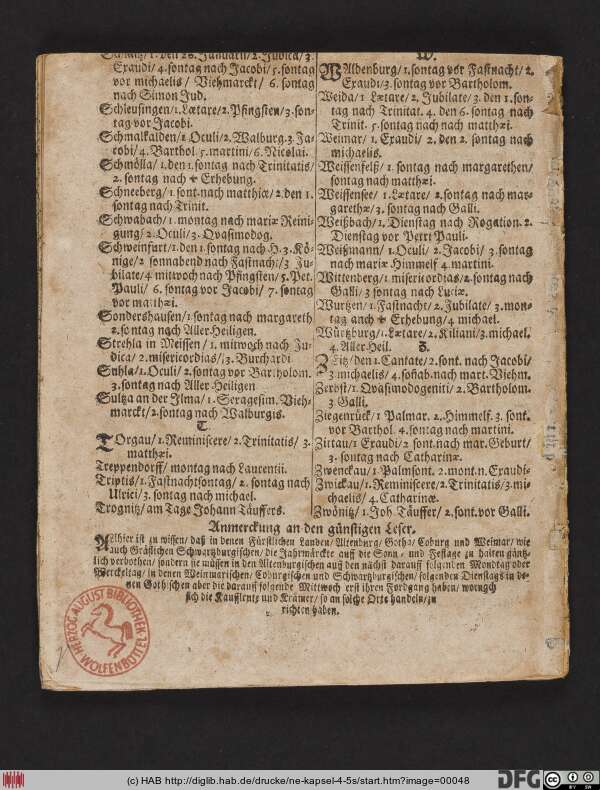 1. den 26. Januarii/2. Judica/3.
Exaudi/4. sontag nach Jacobi/5. sontag
vor michaelis/ Viehmarckt/ 6. sontag
nach Simon Jud.
Schleusingen/1. Lætare/2. Pfingsten/3. son-
tag vor Jacobi.
Schmalkalden/1. Oculi/2. Walburg. 3 Ja-
cobi/4. Barthol. 5. martini/6. Nicolai.
Schmölla/1. den 1. sontag nach Trinitatis/
2. sontag nach ✠ Erhebung.
Schneeberg/1 sont. nach matthiæ/2. den 1.
sontag nach Trinit.
Schwabach/1. montag nach mariæ Reini-
gung/2. Oculi/3. Qvasimodog.
Schweinfurt/1. den 1. sontag nach H. 3. Kö-
nige/2 sonnabend nach Fastnacht/3 Ju-
bilate/4 mitwoch nach Pfingsten/5. Pet.
Pauli/ 6. sontag vor Jacobi/ 7. sontag
vor matthæi.
Sondershausen/1. sontag nach margareth
2. sontag nach Aller Heiligen.
Strehla in Meissen/1. mitwoch nach Ju-
dica/2. misericordias/3. Burchardi
Suhla/1. Oculi/2. sontag vor Bartholom.
3. sontag nach Aller Heiligen
Sultza an der Ilma/1. Seragesim. Vieh-
marckt/2. sontag nach Walburgis.
T.
TOrgau/1. Reminiscere/2. Trinitatis/3.
matthæi.
Treppendorff/ montag nach Laurentii.
Triptis/1. Fastnachtsontag/2. sontag nach
Ulrici/3. sontag nach michael.
Trognitz/am Tage Johann Täuffers.
W.
WAldenburg/1. sontag vor Fastnacht/2.
Exaudi/3. sontag vor Bartholom.
Weida/1 Lætare/2. Jubilate/3. den 1. son-
tag nach Trinitat. 4. den 6. sontag nach
Trinit. 5. sontag nach nach matthæi.
Weimar/1. Exaudi/2. den 2. sontag nach
michaelis.
Weissenfelß/1. sontag nach margarethen/
sontag nach matthæi.
Weissensee/1. Lætare/2. sontag nach mar-
garethæ/3. sontag nach Galli.
Weißbach/1. Dienstag nach Rogation. 2.
Dienstag vor Petri Pauli.
Weißmann/1. Oculi/2. Jacobi/3. sontag
nach mariæ Himmelf 4. martini.
Wittenberg/1 misericordias/2. sontag nach
Galli/3 sontag nach Luciæ.
Wurtzen/1. Fastnacht/2. Jubilate/3. mon-
tag nach ✠ Erhebung/4 michael.
Würtzburg/1. Lætare/2. Kiliani/3. michael.
4. Aller Heil.
Z.
ZEitz/den 1. Cantate/2. sont. nach Jacobi/
3 michaelis/4. soñab. nach mart. Viehm.
Zerbst/1. Qvasimodogeniti/2. Bartholom.
3 Galli.
Ziegenrück/1 Palmar. 2. Himmelf. 3. sont.
vor Barthol. 4. sontag nach martini.
Zittau/1 Exaudi/2 sont. nach mar. Geburt/
3. sontag nach Catharinæ.
Zwenckau/1 Palmsont. 2. mont. n. Exaudi.
Zwickau/1. Reminiscere/2. Trinitatis/3. mi-
chaelis/4. Catharinæ.
Zwönitz/1. Joh Täuffer/2. sont. vor Galli.
Anmerckung an den günstigen Leser.
ALlhier ist zu wissen/ daß in denen Fürstlichen Landen/ Altenburg/ Gotha/ Coburg und Weimar/ wie
auch Gräflichen Schwartzburgischen/ die Jahrmärckte auff die Sonn- und Festtage zu halten gäntz-
lich verbothen/ sondern sie müssen in den Altenburgischen auff den nächst darauff folgenden Montag oder
Werckeltag/ in denen Weimarischen/ Coburgischen und Schwartzburgischen/ folgenden Dienstags in de-
nen Gothischen aber die darauff folgende Mittwoch erst ihren Fordgang haben/ wornach
sich die Kauffleute und Krämer/ so an solche Orte handeln/ zu
richten haben.
HERZOG AUGUST BIBLIOTHEK
WOLFENBÜTTEL
(c) HAB http://diglib.hab.de/drucke/ne-kapsel-4-5s/start.htm?image=00048
DFG
BY SA